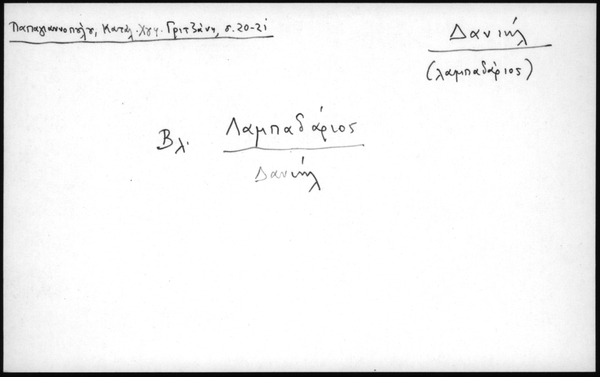 Παπαγιαννοπούλου, Κατάλ. Χφφ. Γριτζάνη, σ. 20-21
Δανιήλ
(λαμπαδάριος)
Βλ. Λαμπαδάριος
Δανιήλ